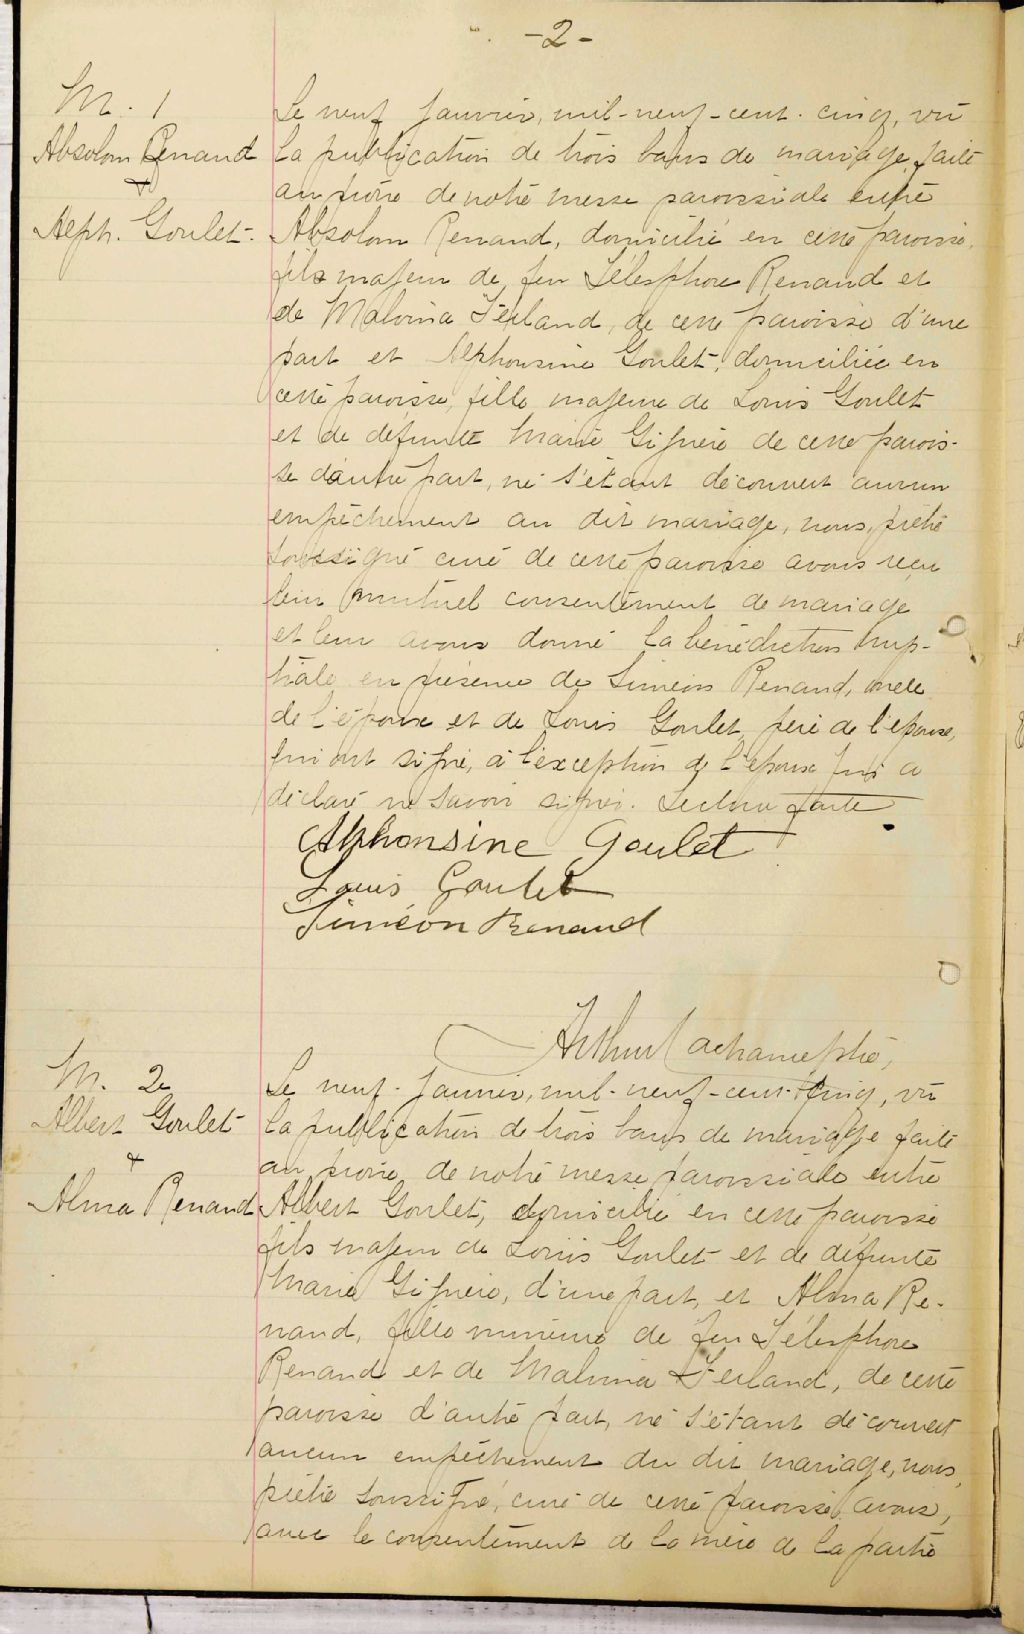 -2-
M. 1
Absolom Renaud
&
Alph. Goulet.
Le neuf janvier, mil-neuf-cent-cinq, vu
la publication de trois bans de mariage faite
au prône de notre messe paroissiale entre
Absolom Renaud, domicilié en cette paroisse,
fils majeur de feu Télesphore Renaud et
de Malvina Ferland, de cette paroisse d'une
part et Alphonsine Goulet, domiciliée en
cette paroisse, fille majeure de Louis Goulet
et de défunte Marie Giguère de cette parois-
se d'autre part, ne s'étant découvert aucun
empêchement au dit mariage, nous, prêtre
soussigné curé de cette paroisse avons reçu
leur mutuel consentement de mariage
et leur avons donné la bénédiction nup-
tiale en présence de Siméon Renaud, oncle
de l'époux et de Louis Goulet, père de l'épouse,
qui ont signé, à l'exception de l'époux qui a
déclaré ne savoir signer. Lecture faite
Alphonsine Goulet
Louis Goulet
Siméon Renaud
Arthur Lachance ptre,
M. 2
Albert Goulet
&
Alma Renaud
Le neuf-janvier, mil-neuf-cent-cinq, vu
la publication de trois bans de mariage faite
au prône de notre messe paroissiale entre
Albert Goulet, domicilié en cette paroisse
fils majeur de Louis Goulet et de défunte
Marie Giguère, d'une part, et Alma Re-
naud, fille mineure de feu Télesphore
Renaud et de Malvina Ferland, de cette
paroisse d'autre part, ne s'étant découvert
aucun empêchement du dit mariage, nous,
prêtre soussigné, curé de cette paroisse, avons,
avec le consentement de la mère de la partie